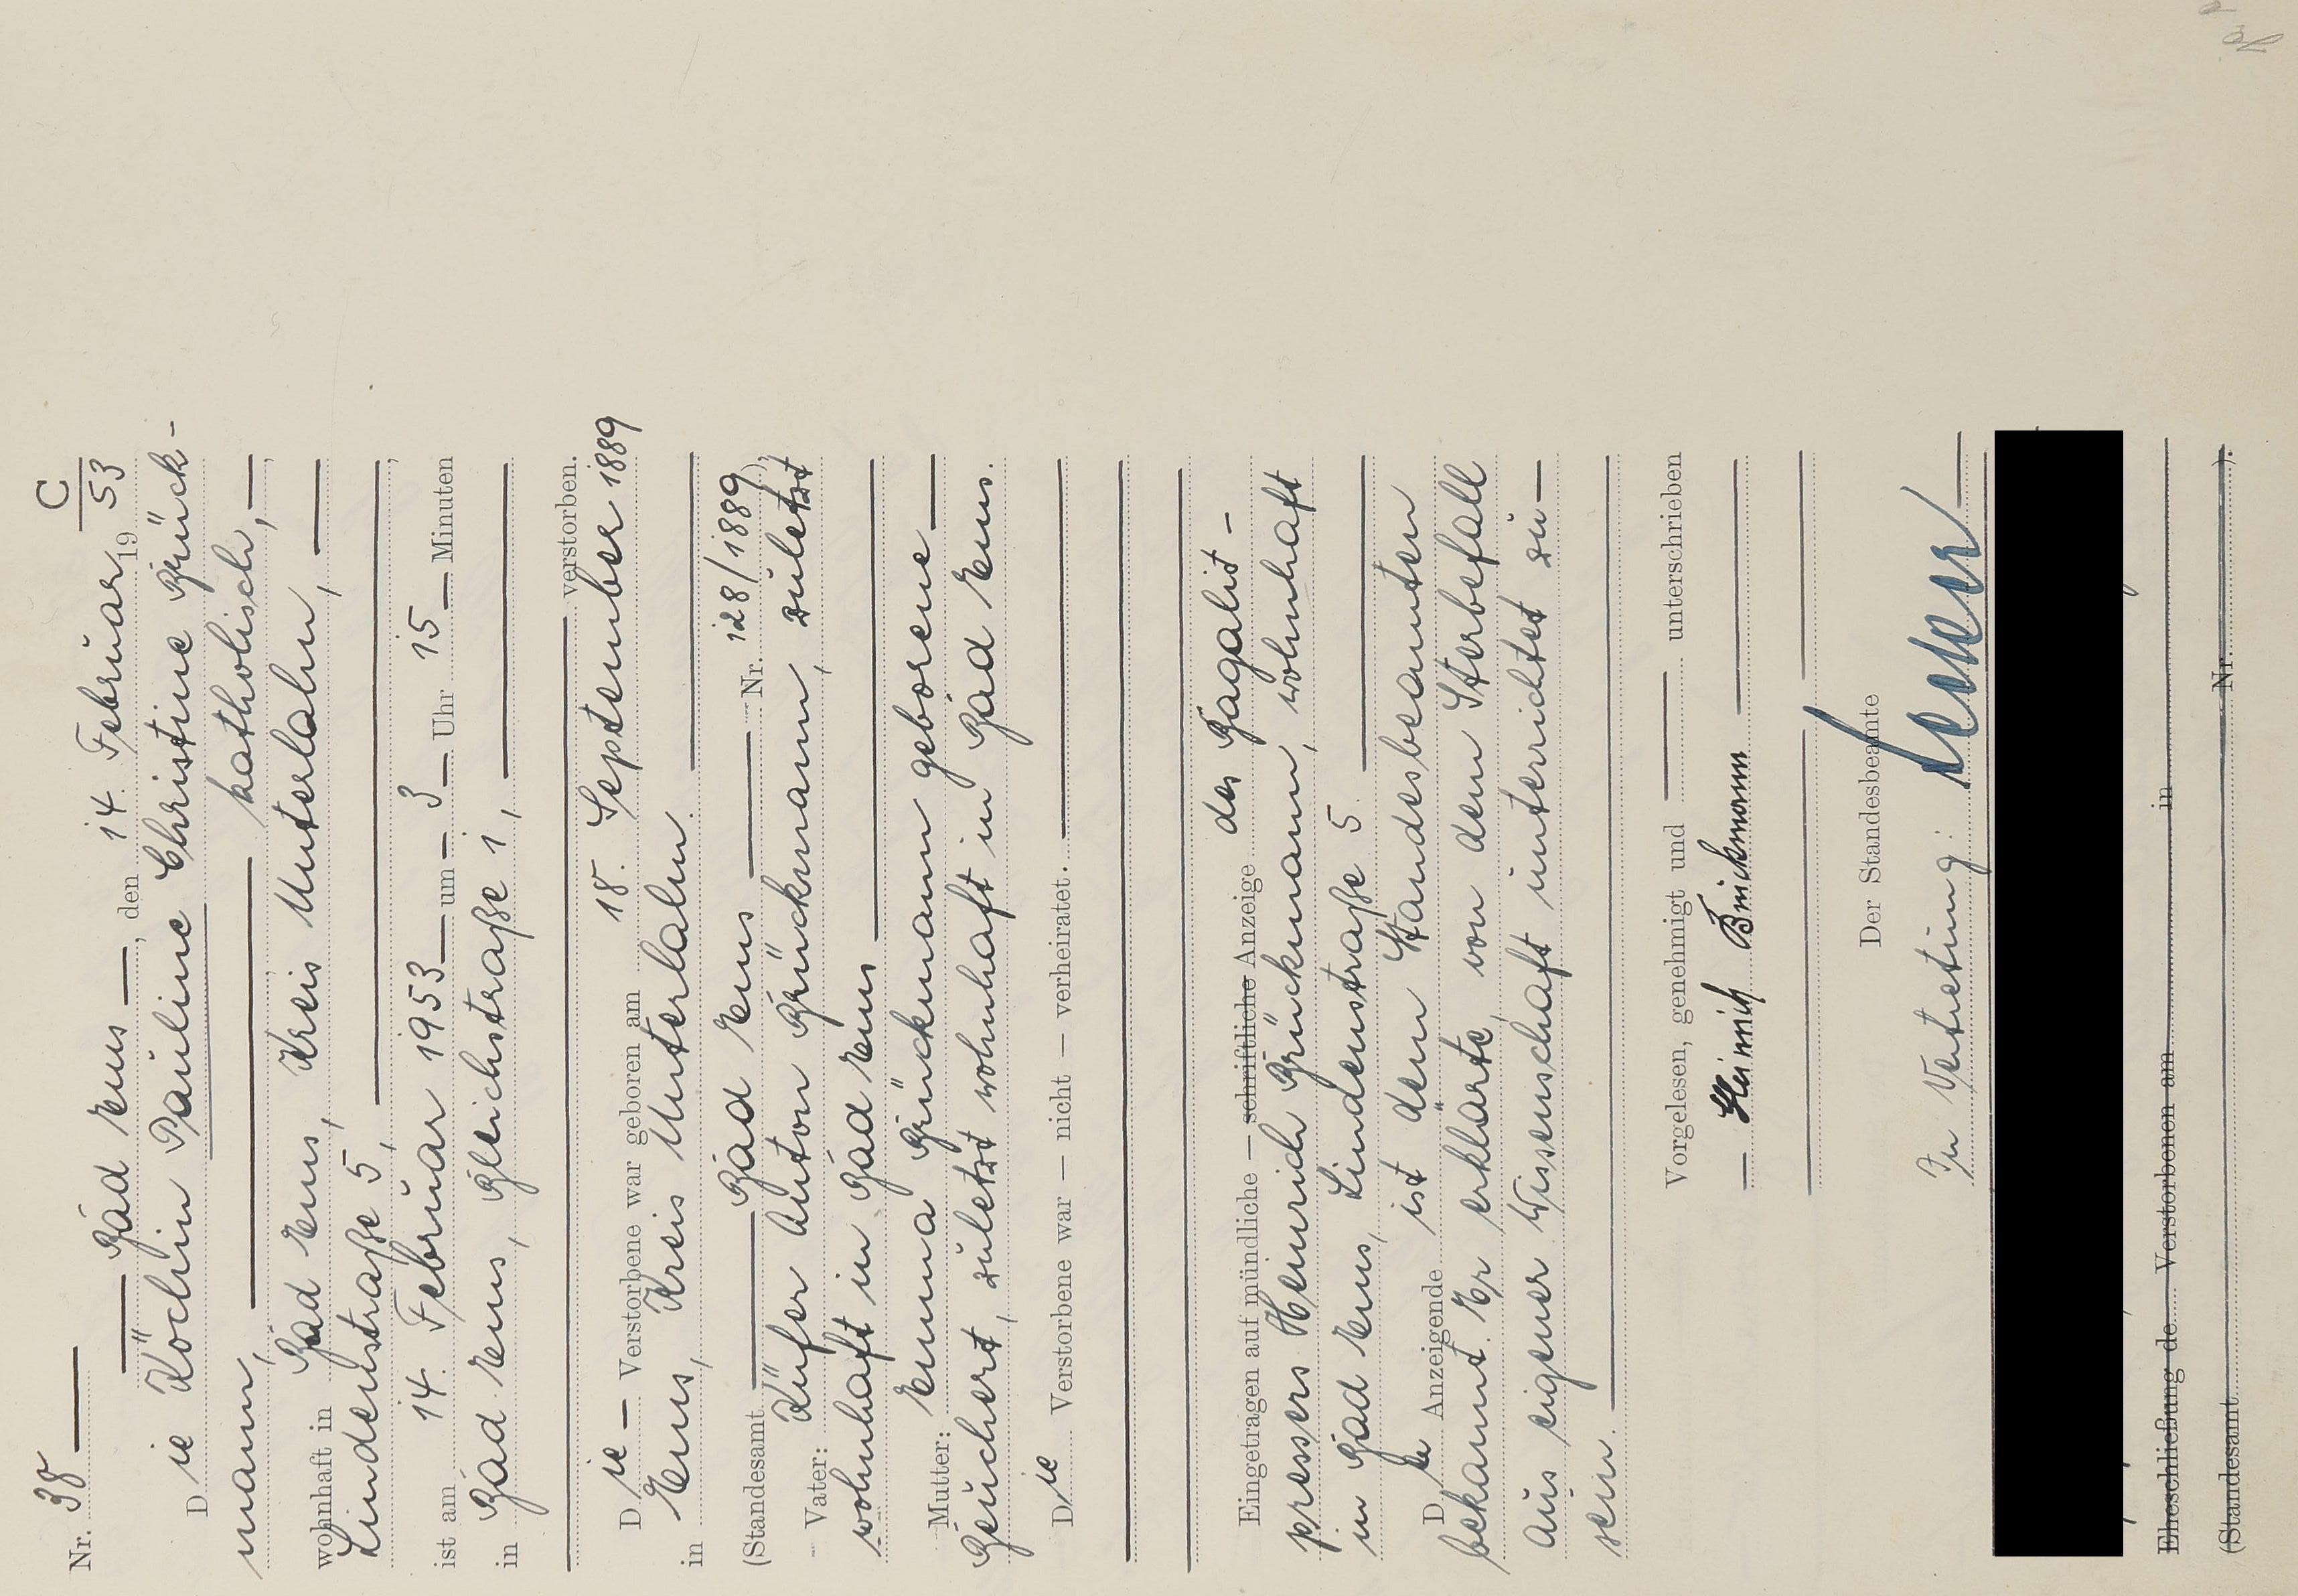 C
Nr. 38
Bad Ems, den 14. Februar 1953
Die Köchin Pauline Christine Brück-
mann, katholisch,
wohnhaft in Bad Ems, Kreis Unterlahn,
Lindenstraße 5,
ist am 14. Februar 1953 um 3 Uhr 15 Minuten
in Bad Ems, Bleichstraße 1,
verstorben.
Die Verstorbene war geboren am 18. September 1889
in Ems, Kreis Unterlahn.
(Standesamt Bad Ems Nr. 128/1889)
Vater: Küfer Anton Brückmann, zuletzt
wohnhaft in Bad Ems
Mutter: Emma Brückmann geborene
Beuchert, zuletzt wohnhaft in Bad Ems.
Die Verstorbene war — nicht — verheiratet.
Eingetragen auf mündliche — schriftliche Anzeige des Bagalit-
pressers Heinrich Brückmann, wohnhaft
in Bad Ems, Lindenstraße 5.
Der Anzeigende ist dem Standesbeamten
bekannt. Er erklärte, von dem Sterbefall
aus eigener Wissenschaft unterrichtet zu
sein.
Vorgelesen, genehmigt und unterschrieben
Heinrich Brückmann
Der Standesbeamte
In Vertretung:
Eheschließung de Verstorbenen am in
(Standesamt Nr. ).